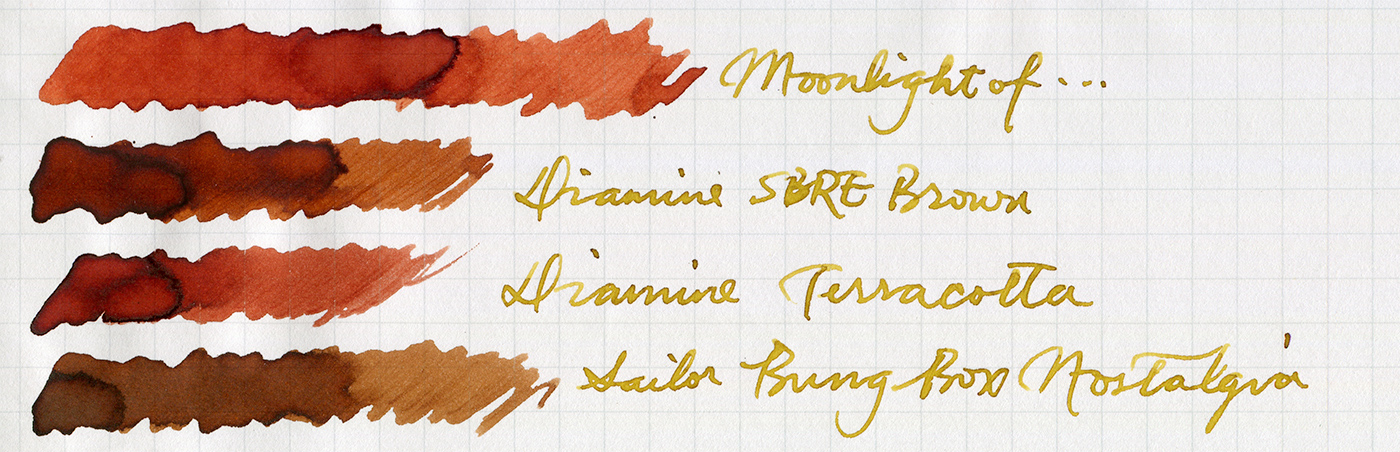 Moonlight of ...
Diamine SBRE Brown
Diamine Terracotta
Sailor Bung Box Nostalgia